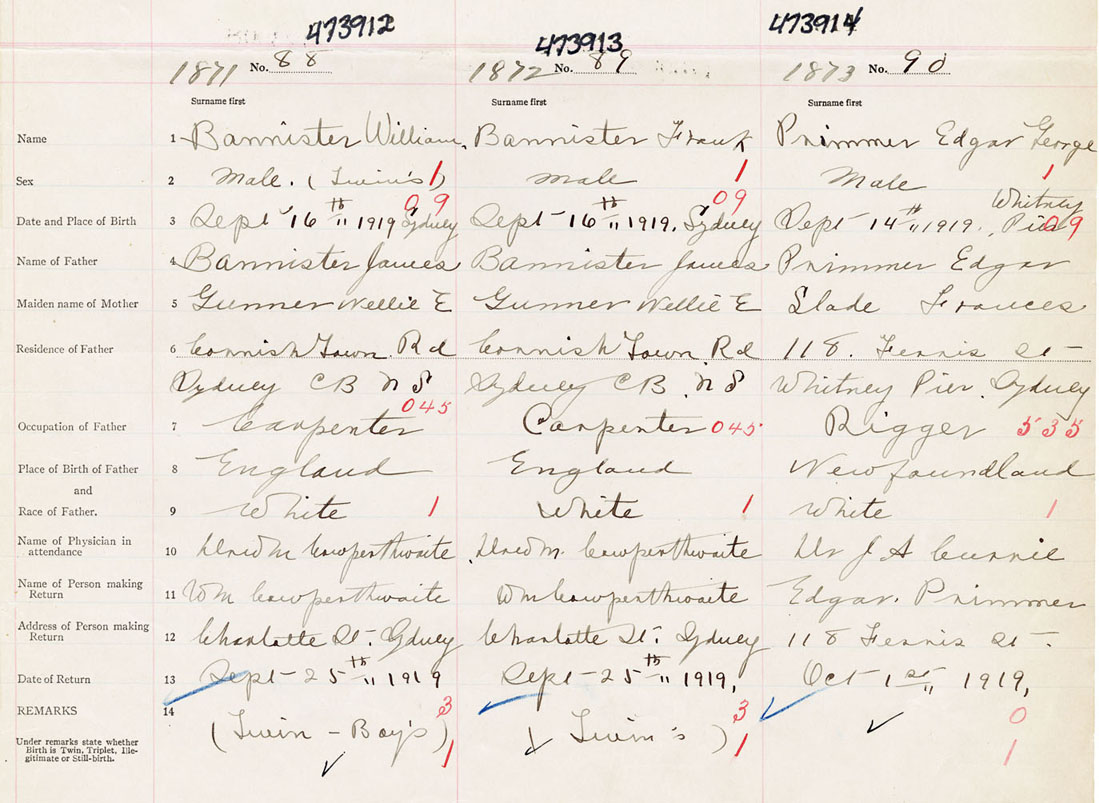 473912 473913 473914
1871 No. 88 1872 No. 89 1873 No. 90
Surname first Surname first Surname first
Name 1 Bannister William, Bannister Frank Primmer Edgar George
Sex 2 Male. (Twin's) 1 Male 1 Male 1
09 09 Whitney
Date and Place of Birth 3 Sept 16th 1919 Sydney Sept 16th 1919, Sydney Sept 14th 1919, Pier 09
Name of Father 4 Bannister James Bannister James Primmer Edgar
Maiden name of Mother 5 Gunner Nellie E Gunner Nellie E Slade Frances
Residence of Father 6 Cornish Town Rd Cornish Town Rd 118. Ferris St
Sydney CB NS Sydney CB NS Whitney Pier, Sydney
Occupation of Father 7 Carpenter 045 Carpenter 045 Rigger 535
Place of Birth of Father 8 England England Newfoundland
and
Race of Father. 9 White 1 White 1 White 1
Name of Physician in
attendance 10 Cowperthwaite Cowperthwaite Dr J A Currie
Name of Person making
Return 11 Wm Cowperthwaite Wm Cowperthwaite Edgar Primmer
Address of Person making
Return 12 Charlotte St. Sydney Charlotte St. Sydney 118 Ferris St.
Date of Return 13 Sept 25th 1919 Sept 25th 1919, Oct 1st 1919,
REMARKS 14 3 3 0
(Twin - Boy's) 1 (Twin's) 1 1
Under remarks state whether
Birth is Twin, Triplet, Ille-
gitimate or Still-birth.